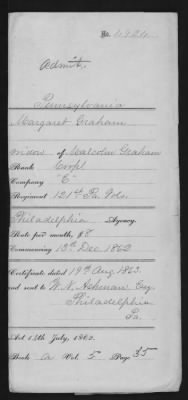 No. 4924
Admit.
Pennsylvania
Margaret Graham
widow of Malcolm Graham
Rank Corpl
Company "E"
Regiment 121st Pa Vols.
Philadelphia Agency.
Rate per month, $8
Commencing 13th Dec 1862
Certificate dated 19th Aug 1863.
and sent to W. N. Ashman Esq
Philadelphia
Pa.
Act 14th July, 1862.
Book A Vol. 5 Page 35